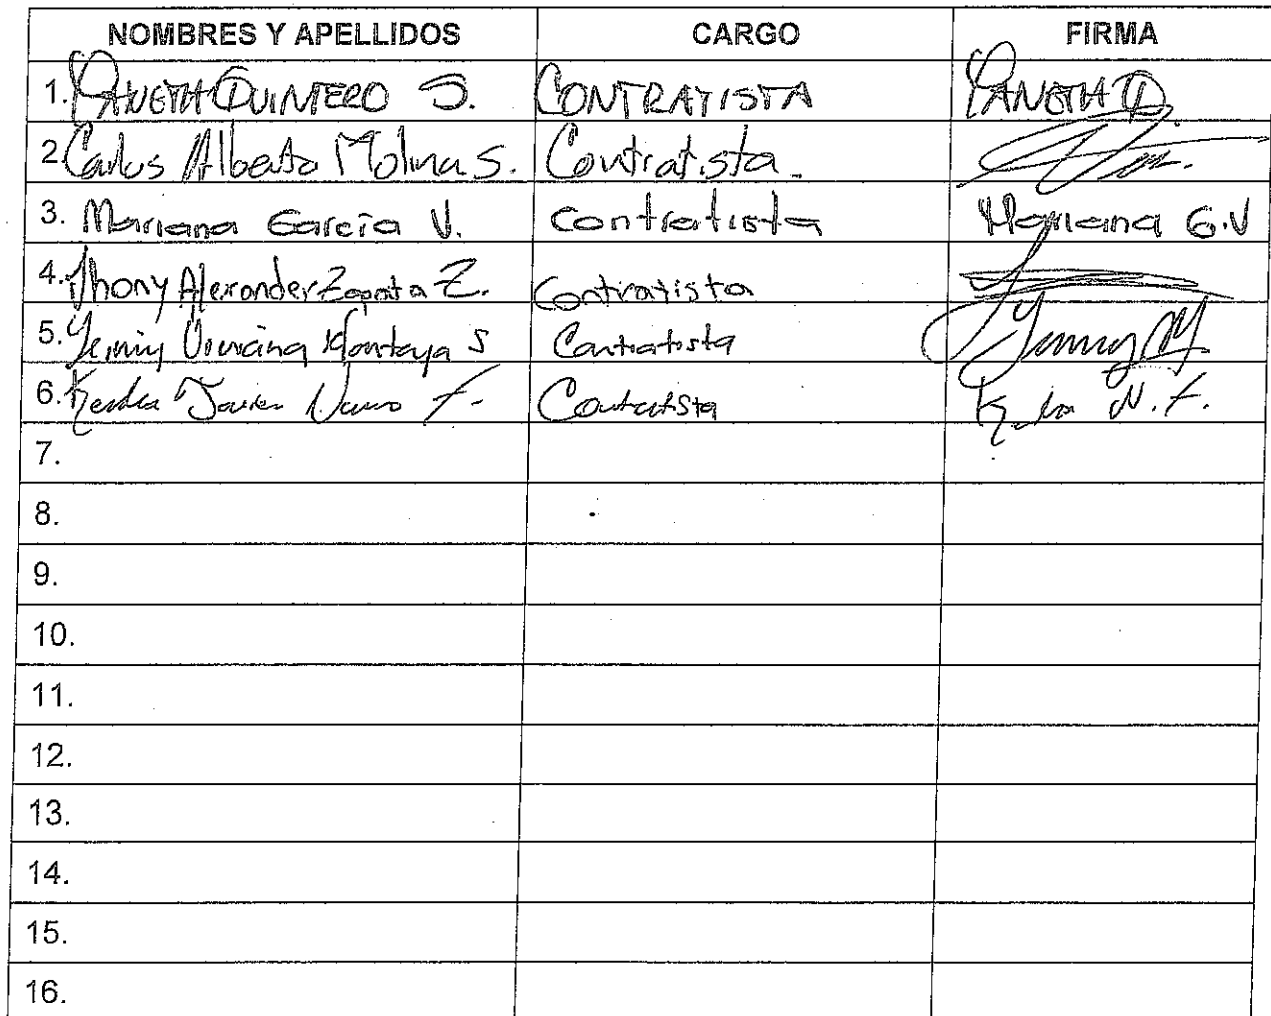 NOMBRES Y APELLIDOS CARGO FIRMA
1. YANETH QUINTERO S. CONTRATISTA YANETH Q.
2. Carlos Alberto Molina S. Contratista.
3. Mariana García V. contratista Mariana G.V
4. Jhony Alexander Zapata Z. Contratista
5. Montoya S Contratista Yenny M
6. Javier F. Contratista N. F.
7.
8.
9.
10.
11.
12.
13.
14.
15.
16.